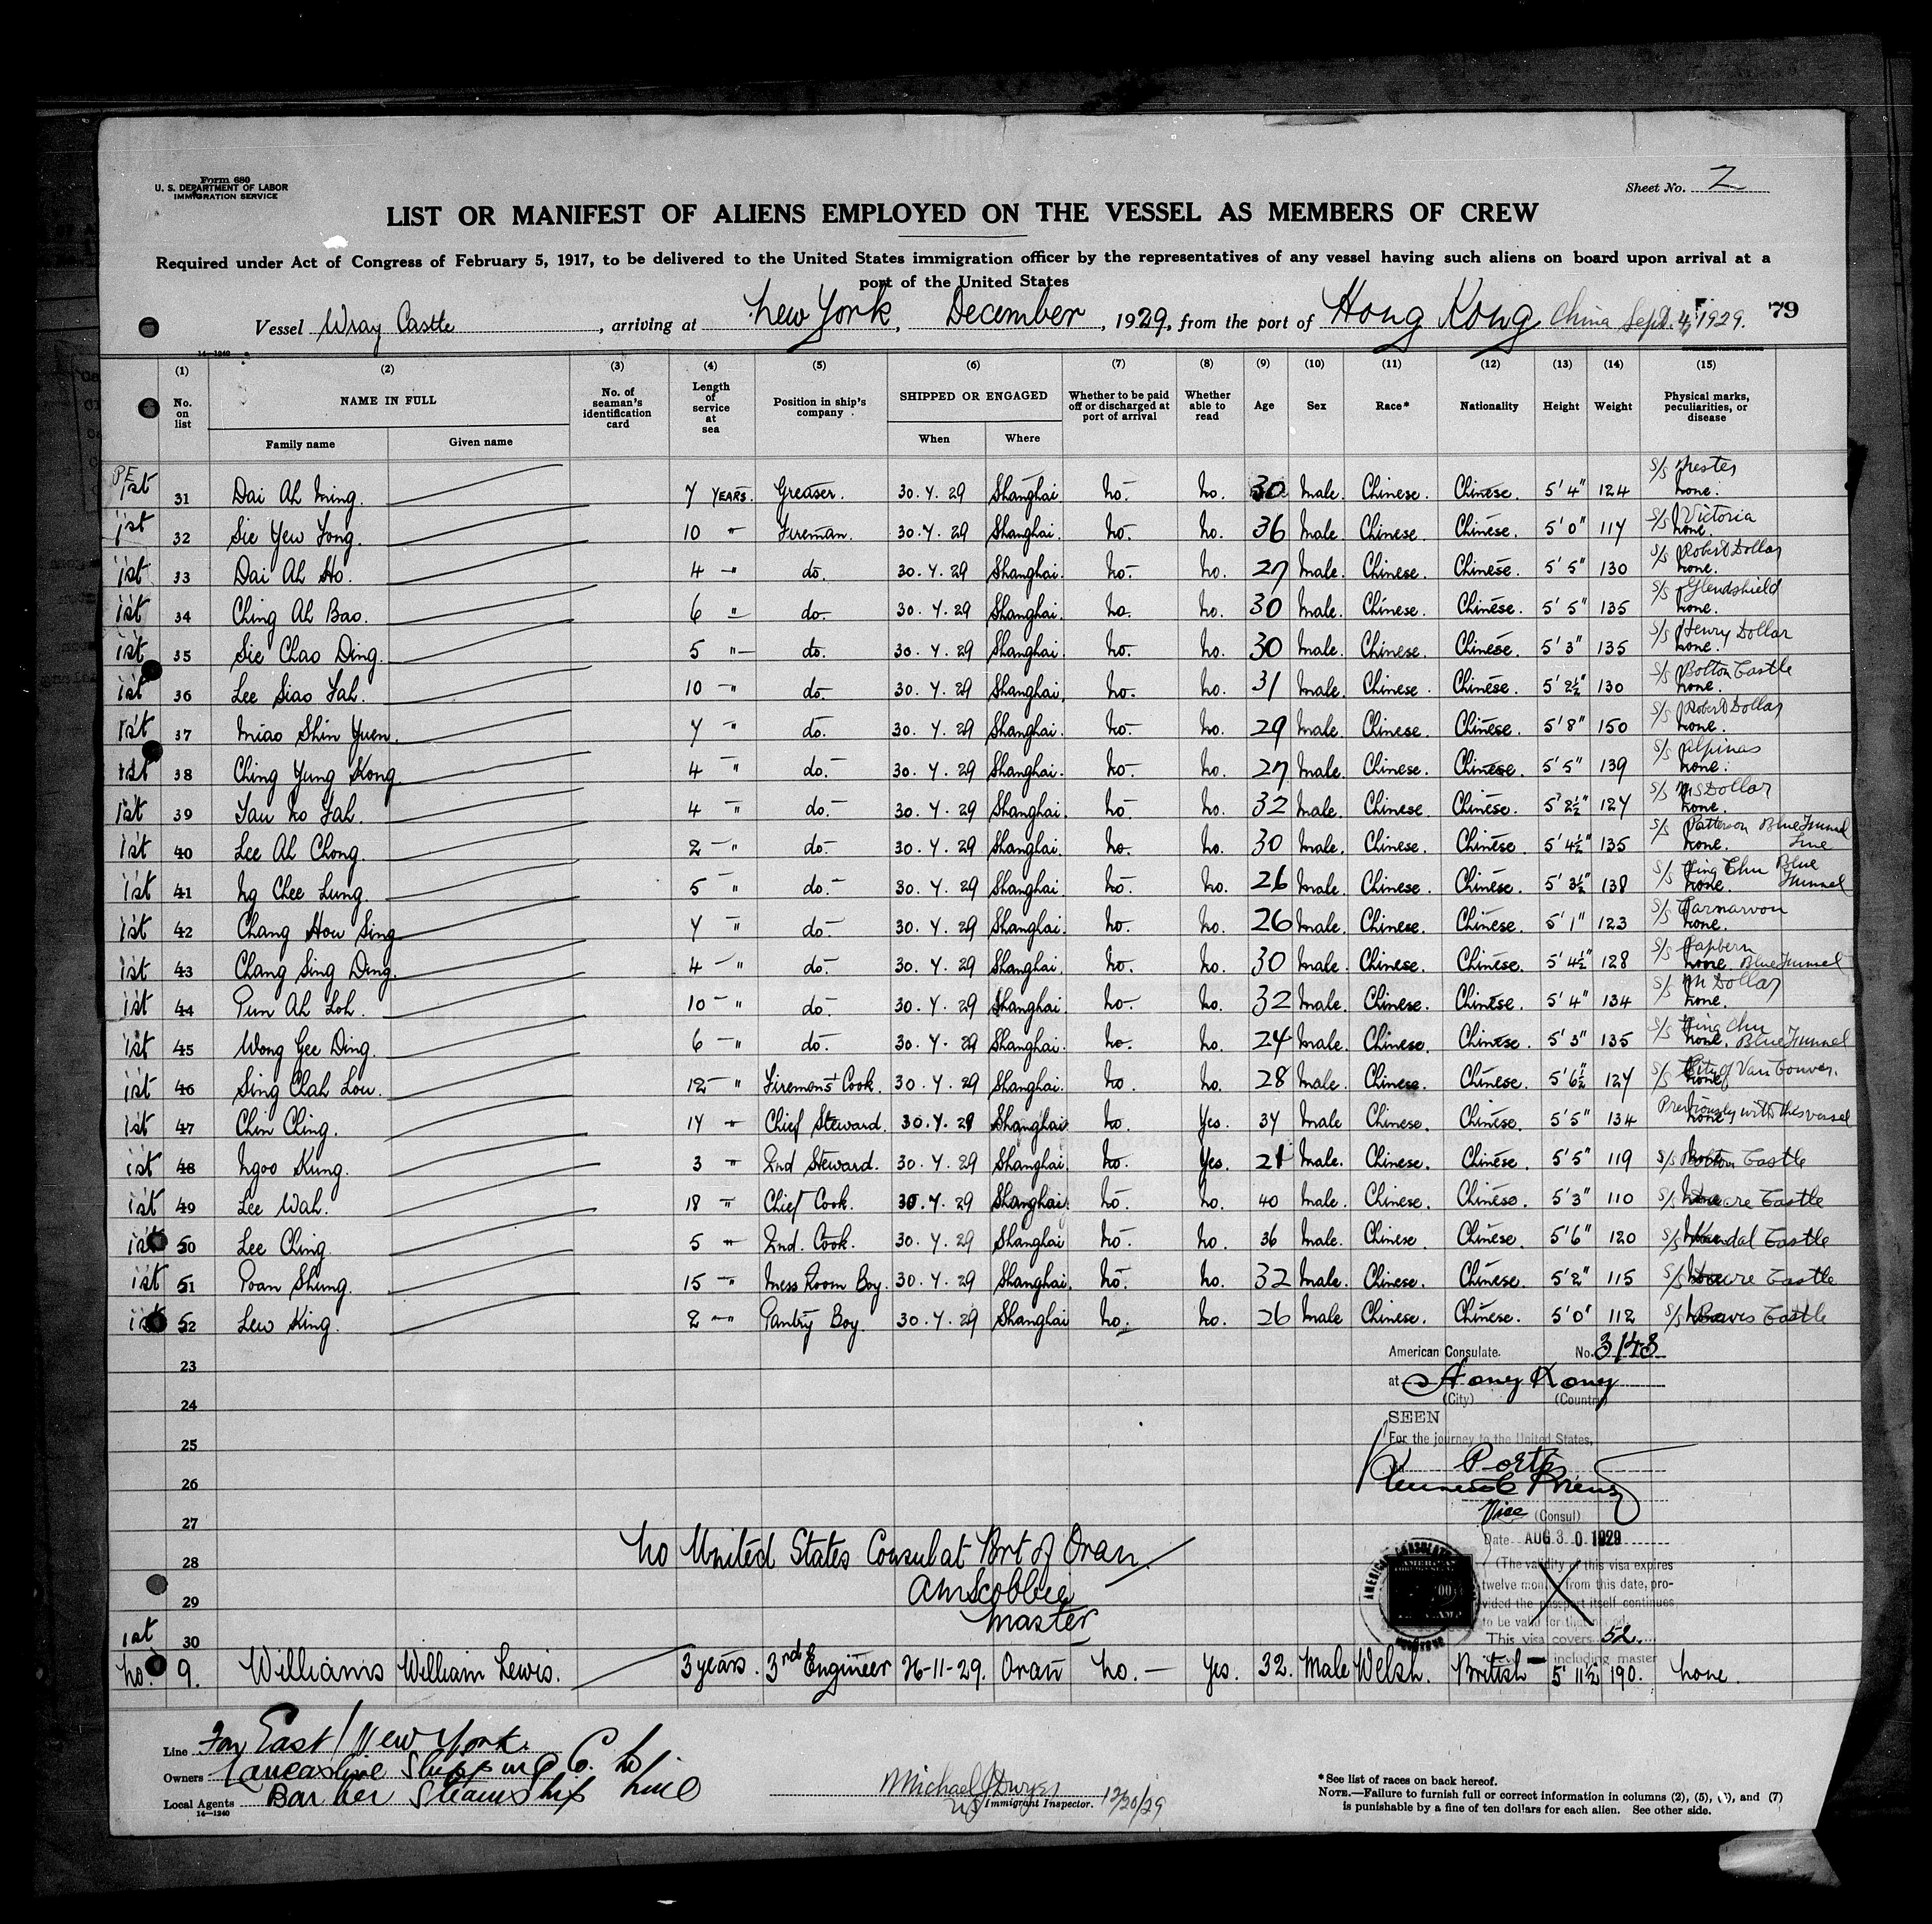 Form 680
U. S. DEPARTMENT OF LABOR
IMMIGRATION SERVICE
Sheet No. 2
LIST OR MANIFEST OF ALIENS EMPLOYED ON THE VESSEL AS MEMBERS OF CREW
Required under Act of Congress of February 5, 1917, to be delivered to the United States immigration officer by the representatives of any vessel having such aliens on board upon arrival at a
port of the United States
Vessel Wray Castle, arriving at New York, December, 1929, from the port of Hong Kong China Sept. 4, 1929. 79
14-1240
(1) (2) (3) (4) (5) (6) (7) (8) (9) (10) (11) (12) (13) (14) (15)
No. on list NAME IN FULL Family name Given name No. of seaman's identification card Length of service at sea Position in ship's company SHIPPED OR ENGAGED When Where Whether to be paid off or discharged at port of arrival Whether able to read Age Sex Race* Nationality Height Weight Physical marks, peculiarities, or disease
PE 1st 31 Dai Ah Ming. 7 YEARS. Greaser. 30.7.29 Shanghai No. No. 30 Male. Chinese. Chinese. 5'4" 124 S/S None.
1st 32 Sie Yew Fong. 10 " Fireman. 30.7.29 Shanghai. No. No. 36 Male. Chinese. Chinese. 5'0" 117 S/S Victoria None.
1st 33 Dai Ah Ho. 4 " do. 30.7.29 Shanghai. No. No. 27 Male. Chinese. Chinese. 5'5" 130 S/S Robert Dollar None.
1st 34 Ching Ah Bao. 6 " do. 30.7.29 Shanghai. No. No. 30 Male. Chinese. Chinese. 5'5" 135 S/S None.
1st 35 Sie Chao Ding. 5 " do. 30.7.29 Shanghai. No. No. 30 Male. Chinese. Chinese. 5'3" 135 S/S Henry Dollar None.
1st 36 Lee Siao Fah. 10 " do. 30.7.29 Shanghai. No. No. 31 Male. Chinese. Chinese. 5'2½" 130 S/S Bolton Castle None.
1st 37 Miao Shin Yuen. 7 " do. 30.7.29 Shanghai. No. No. 29 Male. Chinese. Chinese. 5'8" 150 S/S Robert Dollar None.
1st 38 Ching Yung Kong 4 " do. 30.7.29 Shanghai. No. No. 27 Male. Chinese. Chinese. 5'5" 139 S/S None.
1st 39 Yau No Fah. 4 " do. 30.7.29 Shanghai. No. No. 32 Male. Chinese. Chinese. 5'2½" 127 S/S M S Dollar None.
1st 40 Lee Ah Chong. 2 " do. 30.7.29 Shanghai. No. No. 30 Male. Chinese. Chinese. 5'4½" 135 S/S Patterson Blue Funnel Line None.
1st 41 Ng Chee Lung. 5 " do. 30.7.29 Shanghai. No. No. 26 Male. Chinese. Chinese. 5'3½" 138 S/S Blue Funnel None.
1st 42 Chang How Sing 7 " do. 30.7.29 Shanghai. No. No. 26 Male. Chinese. Chinese. 5'1" 123 S/S Carnarvon None.
1st 43 Chang Sing Ding. 4 " do. 30.7.29 Shanghai. No. No. 30 Male. Chinese. Chinese. 5'4½" 128 S/S None. Blue Funnel
1st 44 Pun Ah Loh. 10 " do. 30.7.29 Shanghai. No. No. 32 Male. Chinese. Chinese. 5'4" 134 S/S M Dollar None.
1st 45 Wong Gee Ding. 6 " do. 30.7.29 Shanghai. No. No. 24 Male. Chinese. Chinese. 5'3" 135 S/S None. Blue Funnel
1st 46 Sing Clah Lou. 12 " Firemen's Cook. 30.7.29 Shanghai. No. No. 28 Male. Chinese. Chinese. 5'6½ 127 S/S City of Vancouver. None
1st 47 Chin Ching. 14 " Chief Steward. 30.7.29 Shanghai. No. Yes. 34 Male Chinese. Chinese. 5'5" 134 Previously with this vessel None
1st 48 Ngoo Kung. 3 " 2nd Steward. 30.7.29 Shanghai No. Yes. 21 Male. Chinese. Chinese. 5'5" 119 S/S Bolton Castle
1st 49 Lee Wah. 18 " Chief Cook. 30.7.29 Shanghai. No. No. 40 Male. Chinese. Chinese. 5'3" 110 S/S Castle
1st 50 Lee Ching 5 " 2nd. Cook. 30.7.29 Shanghai No. No. 36 Male. Chinese. Chinese. 5'6" 120 S/S Kendal Castle
1st 51 Poan Shung. 15 " Mess Room Boy. 30.7.29 Shanghai. No. No. 32 Male. Chinese. Chinese. 5'2" 115 S/S Castle
1st 52 Lew King. 2 " Pantry Boy. 30.7.29 Shanghai No. No. 26 Male Chinese. Chinese. 5'0" 112 S/S Castle
American Consulate. No. 3148
23
at Hong Kong
(City) (Country)
24
SEEN
25
For the journey to the United States,
26
Vice (Consul)
27
Date AUG 30 1929
No United States Consul at Port of Oran
28
(The validity of this visa expires
twelve months from this date, pro-
vided the passport itself continues
to be valid for that period.
29
A M Scobbie
Master
This visa covers 52
including master
1st 30
No. 9. Williams William Lewis. 3 years. 3rd Engineer 26-11-29. Oran No. Yes. 32. Male Welsh. British 5'11½ 190. None.
Line Far East / New York.
Owners Lancashire Shipping Co. Ld
Local Agents Barber Steamship Line
14-1240
Michael J Dwyer
US Immigrant Inspector. 12/20/29
*See list of races on back hereof.
NOTE.—Failure to furnish full or correct information in columns (2), (5), (6), and (7)
is punishable by a fine of ten dollars for each alien. See other side.